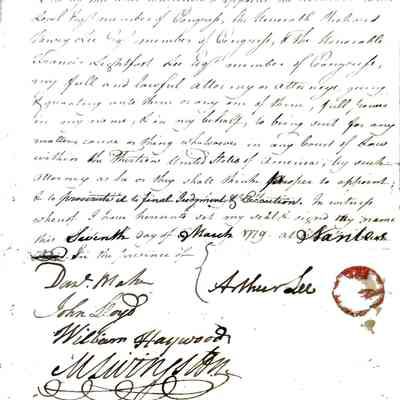 Esqr member of Congress, the Honorable Richard
Henry Lee Esqr member of Congress, & the Honorable
Francis Lightfoot Lee Esqr member of Congress,
my full and lawful attorney or attorneys giving
& granting unto them or any one of them, full power
in my name, & in my behalf, to bring suit for any
matter cause or thing whatsoever in any Court of Law
within the Thirteen United States of America, by such
Attorney as he or they shall think proper to appoint
& to prosecute it to final Judgment & Execution. In witness
whereof I have hereunto set my seal & signd my name
this Seventh day of March 1779 at Nantes
In the presence of
Danl.
Arthur Lee
John Lloyd
William Haywood
M Livingston